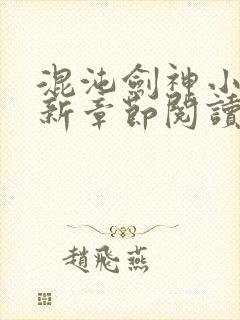 混沌劍神小
新章節閱讀
趙飛燕